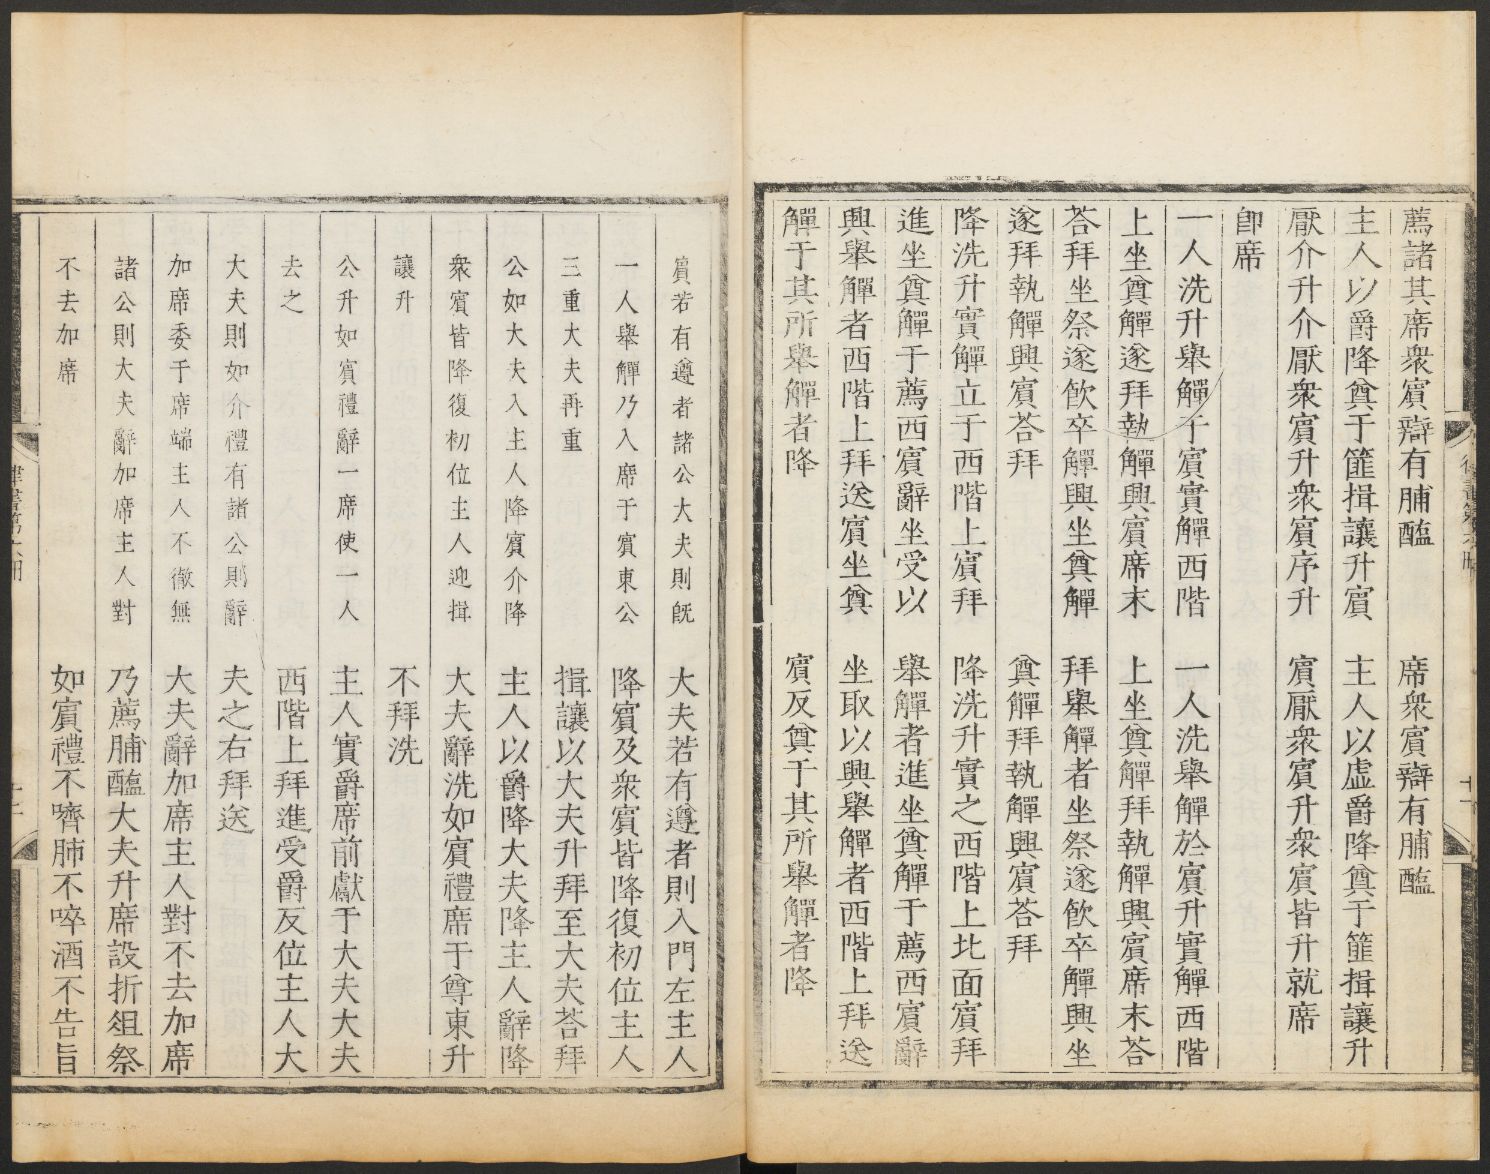 薦諸其席衆賓辯有脯醢　席衆賓辯有脯醢
主人以爵降奠于篚揖讓升賓　主人以虛爵降奠于篚揖讓升
厭介升介厭衆賓升衆賓序升　賓厭衆賓升衆賓皆升就席
卽席
一人洗升舉觶于賓實觶西階　一人洗舉觶於賓升實觶西階
上坐奠觶遂拜執觶興賓席末　上坐奠觶拜執觶興賓席末荅
荅拜坐祭遂飲卒觶興坐奠觶　拜舉觶者坐祭遂飲卒觶興坐
遂拜執觶興賓荅拜　奠觶拜執觶興賓荅拜
降洗升實觶立于西階上賓拜　降洗升實之西階上北面賓拜
進坐奠觶于薦西賓辭坐受以　舉觶者進坐奠觶于薦西賓辭
興舉觶者西階上拜送賓坐奠　坐取以興舉觶者西階上拜送
觶于其所舉觶者降　賓反奠于其所舉觶者降
賓若有遵者諸公大夫則旣　大夫若有遵者則入門左主人
一人舉觶乃入席于賓東公　降賓及衆賓皆降復初位主人
三重大夫再重　揖讓以大夫升拜至大夫荅拜
公如大夫入主人降賓介降　主人以爵降大夫降主人辭降
衆賓皆降復初位主人迎揖　大夫辭洗如賓禮席于尊東升
讓升　不拜洗
公升如賓禮辭一席使一人　主人實爵席前獻于大夫大夫
去之　西階上拜進受爵反位主人大
大夫則如介禮有諸公則辭　夫之右拜送
加席委于席端主人不徹無　大夫辭加席主人對不去加席
諸公則大夫辭加席主人對　乃薦脯醢大夫升席設折俎祭
不去加席　如賓禮不嚌肺不啐酒不告旨